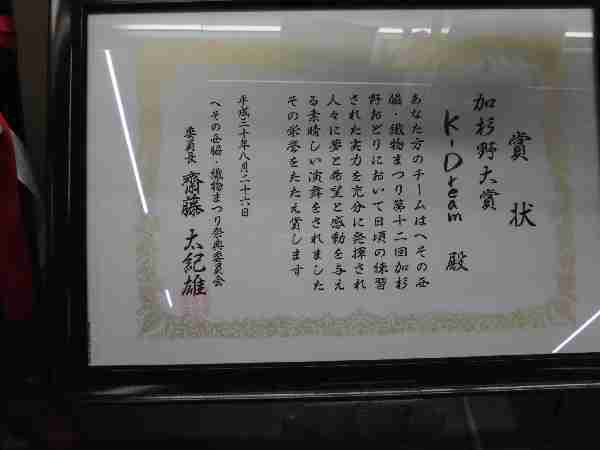 賞状
加杉野大賞
K-Dream 殿
あなた方のチームはへその西
脇・織物まつり第十二回加杉
野おどりにおいて日頃の練習
された実力を充分に発揮され
人々に夢と希望と感動を与え
る素晴しい演舞をされました
その栄誉をたたえ賞します
平成三十年八月二十六日
へその西脇・織物まつり祭典委員会
委員長 齋藤 太紀雄